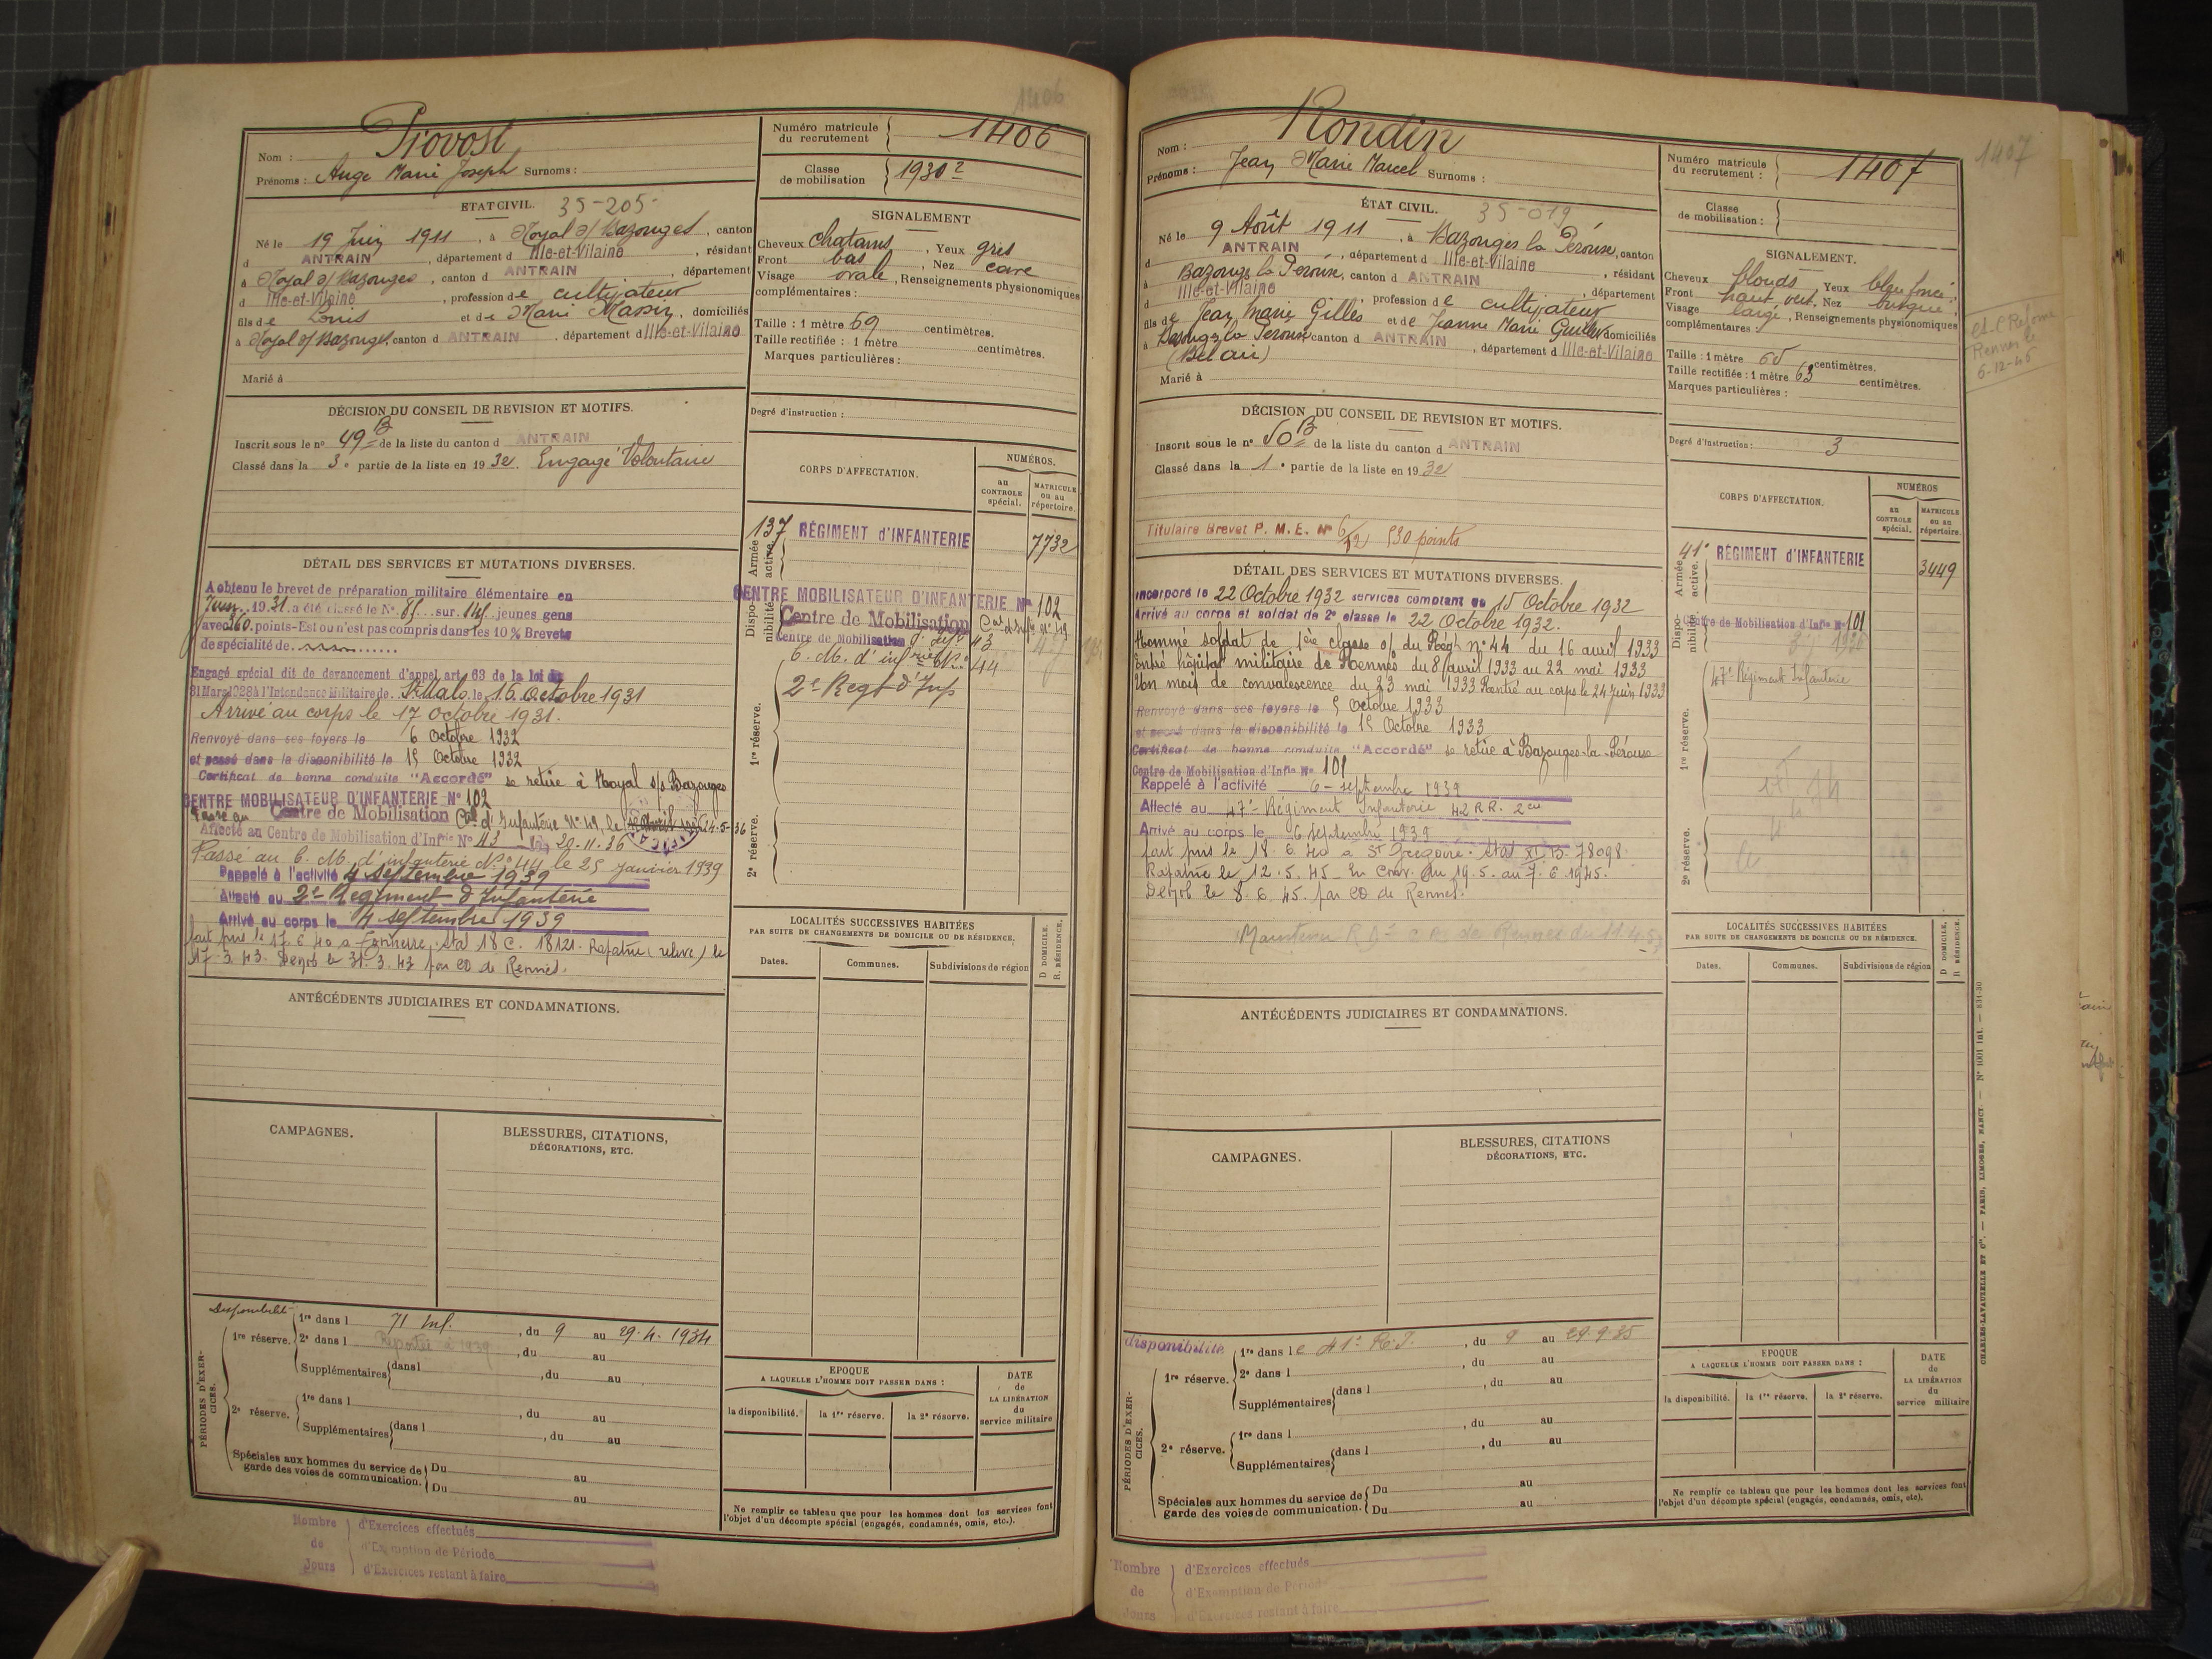 1406
Nom : Provost
Prénoms : Ange Marie Joseph Surnoms :
Numéro matricule du recrutement 1406
Classe de mobilisation 1930²
ETAT CIVIL. 35-205
Né le 19 Juin 1911, à Noyal s/ Bazouges, canton
d ANTRAIN, département d Ille-et-Vilaine, résidant
à Noyal s/ Bazouges, canton d ANTRAIN, département
d Ille-et-Vilaine, profession de cultivateur
fils de Louis et de Marie Massin, domiciliés
à Noyal s/ Bazouges canton d ANTRAIN, département d Ille-et-Vilaine
Marié à
SIGNALEMENT
Cheveux chatains, Yeux gris
Front bas, Nez cave
Visage ovale, Renseignements physionomiques
complémentaires :
Taille : 1 mètre 69 centimètres.
Taille rectifiée : 1 mètre centimètres.
Marques particulières :
Degré d'instruction :
DÉCISION DU CONSEIL DE REVISION ET MOTIFS.
Inscrit sous le n° 49 B de la liste du canton d ANTRAIN
Classé dans la 3e partie de la liste en 1932. Engagé Volontaire
CORPS D'AFFECTATION.
NUMÉROS.
au CONTROLE spécial.
MATRICULE ou au répertoire.
Armée active.
137 RÉGIMENT d'INFANTERIE 7732
Disponibilité
CENTRE MOBILISATEUR D'INFANTERIE N° 102
Centre de Mobilisation Cal d'Inf. N° 49
Centre de Mobilisation d'Inf. 43
C. M. d'infrie N° 44
2e Regt d'Inf
1re réserve.
2e réserve.
DÉTAIL DES SERVICES ET MUTATIONS DIVERSES.
A obtenu le brevet de préparation militaire élémentaire en
Juin 1931 a été classé le N° 85 sur 141 jeunes gens
avec 360 points-Est ou n'est pas compris dans les 10 % Brevets
de spécialité de
Engagé spécial dit de devancement d'appel art. 63 de la loi du
31 Mars 1928 à l'Intendance Militaire de St Malo, le 16 Octobre 1931
Arrivé au corps le 17 octobre 1931.
Renvoyé dans ses foyers le 6 Octobre 1932
et passé dans la disponibilité le 15 Octobre 1932
Certificat de bonne conduite "Accordé" se retire à Noyal s/s Bazouges
CENTRE MOBILISATEUR D'INFANTERIE N° 102
Passé au Centre de Mobilisation Cal d'Infanterie N° 49, le 24-5-36
Affecté au Centre de Mobilisation d'Infrie N° 43 20-11-36
Passé au C. M. d'infanterie N° 44 le 25 janvier 1939
Rappelé à l'activité 4 Septembre 1939
Affecté au 2e Régiment d'Infanterie
Arrivé au corps le 4 septembre 1939
fait pris le 17 6 40 a Tonnerre. Stal 18 C. 18121. Rapatrié (relève) le
17 3 43. Demob le 31. 3. 43 par CD de Rennes.
ANTÉCÉDENTS JUDICIAIRES ET CONDAMNATIONS.
LOCALITÉS SUCCESSIVES HABITÉES
PAR SUITE DE CHANGEMENTS DE DOMICILE OU DE RÉSIDENCE.
Dates. Communes. Subdivisions de région
D DOMICILE. R. RÉSIDENCE.
CAMPAGNES.
BLESSURES, CITATIONS,
DÉCORATIONS, ETC.
PÉRIODES D'EXERCICES.
Disponibilité
1re réserve.
1re dans l 71 Inf., du 9 au 29.4.1934
2e dans l Reportée à 1939, du au
Supplémentaires dans l, du au
2e réserve.
1re dans l, du au
Supplémentaires dans l, du au
Spéciales aux hommes du service de garde des voies de communication. Du au
Du au
EPOQUE
A LAQUELLE L'HOMME DOIT PASSER DANS :
la disponibilité. la 1re réserve. la 2e réserve.
DATE de LA LIBÉRATION du service militaire
Ne remplir ce tableau que pour les hommes dont les services font
l'objet d'un décompte spécial (engagés, condamnés, omis, etc.).
Nombre de Jours
d'Exercices effectués
d'Exemption de Période
d'Exercices restant à faire
1407
Nom : Rondin
Prénoms : Jean Marie Marcel Surnoms :
Numéro matricule du recrutement : 1407
Classe de mobilisation :
ÉTAT CIVIL. 35-019
Né le 9 Août 1911, à Bazouges la Pérouse, canton
d ANTRAIN, département d Ille-et-Vilaine, résidant
à Bazouges la Pérouse, canton d ANTRAIN, département
d Ille-et-Vilaine, profession de cultivateur
fils de Jean Marie Gilles et de Jeanne Marie domiciliés
à Bazouges la Pérouse canton d ANTRAIN, département d Ille-et-Vilaine
(Bel air)
Marié à
SIGNALEMENT.
Cheveux blonds, Yeux bleu foncé
Front haut vert. Nez busqué
Visage large, Renseignements physionomiques
complémentaires :
Taille : 1 mètre 65 centimètres.
Taille rectifiée : 1 mètre 63 centimètres.
Marques particulières :
Degré d'instruction : 3
Réforme
Rennes le
6-12-46
DÉCISION DU CONSEIL DE REVISION ET MOTIFS.
Inscrit sous le n° 50 B de la liste du canton d ANTRAIN
Classé dans la 1e partie de la liste en 1932
Titulaire Brevet P. M. E. N° 530 points
CORPS D'AFFECTATION.
NUMÉROS
au CONTROLE spécial.
MATRICULE ou au répertoire.
Armée active.
41e RÉGIMENT d'INFANTERIE 3449
Disponibilité
Centre de Mobilisation d'Infie N° 101
47e Régiment Infanterie
1re réserve.
2e réserve.
DÉTAIL DES SERVICES ET MUTATIONS DIVERSES.
Incorporé le 22 Octobre 1932 services comptant du 15 Octobre 1932
Arrivé au corps et soldat de 2e classe le 22 Octobre 1932.
Nommé soldat de 1ère classe o/ du Régt n° 44 du 16 avril 1933
Entré hôpital militaire de Rennes du 8 avril 1933 au 22 mai 1933
Un mois de convalescence du 23 mai 1933 Rentré au corps le 24 Juin 1933
Renvoyé dans ses foyers le 5 Octobre 1933
et passé dans la disponibilité le 15 Octobre 1933
Certificat de bonne conduite "Accordé" se retire à Bazouges-la-Pérouse
Centre de Mobilisation d'Infie N° 101
Rappelé à l'activité 6 - septembre 1939
Affecté au 47e Régiment Infanterie 42 RR. 2e
Arrivé au corps le 6 septembre 1939
fait pris le 18. 6. 40 a St Gregoire. Stal XI B 78098
Rapatrié le 12. 5. 45 En Conv. du 19. 5. au 7. 6. 1945.
Demob le 8. 6. 45. par CD de Rennes.
Maintenu de Rennes du 11.4.
ANTÉCÉDENTS JUDICIAIRES ET CONDAMNATIONS.
LOCALITÉS SUCCESSIVES HABITÉES
PAR SUITE DE CHANGEMENTS DE DOMICILE OU DE RÉSIDENCE.
Dates. Communes. Subdivisions de région
D DOMICILE. R RÉSIDENCE.
CAMPAGNES.
BLESSURES, CITATIONS
DÉCORATIONS, ETC.
PÉRIODES D'EXERCICES.
disponibilité
1re réserve.
1re dans le 41e R.I., du 9 au 29.9.35
2e dans l, du au
Supplémentaires dans l, du au
2e réserve.
1re dans l, du au
Supplémentaires dans l, du au
Spéciales aux hommes du service de garde des voies de communication. Du au
Du au
EPOQUE
A LAQUELLE L'HOMME DOIT PASSER DANS :
la disponibilité. la 1re réserve. la 2e réserve.
DATE de LA LIBÉRATION du service militaire
Ne remplir ce tableau que pour les hommes dont les services font
l'objet d'un décompte spécial (engagés, condamnés, omis, etc).
CHARLES-LAVAUZELLE ET Cie. — PARIS, LIMOGES, NANCY. — N° 1001 Int. — 831-30
Nombre de Jours
d'Exercices effectués
d'Exemption de Période
d'Exercices restant à faire